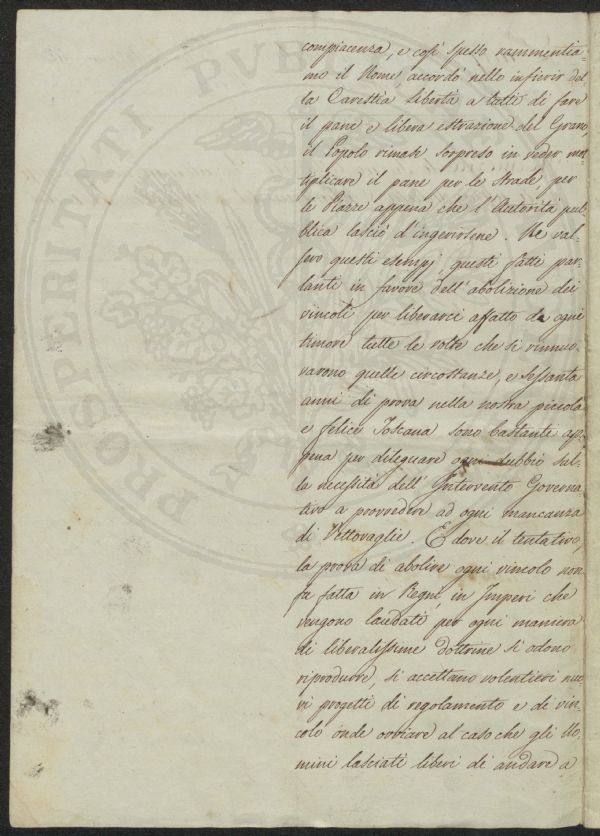 compiacenza, e così spesso rammentia-
mo il Nome accordò nello infierir del-
la Carestìa libertà a tutti di fare
il pane e libera estrazione del Grano,
il Popolo rimase sorpreso in veder mol-
tiplicare il pane per le strade, per
le Piazze appena che l'Autorità pub-
blica lasciò d'ingerirsene. Ne val-
sero questi esempj, questi fatti par-
lanti in favore dell'abolizione dei
vincoli per liberarci affatto da ogni
timore tutte le volte che si rinnuo-
varono quelle circostanze, e sessanta
anni di prova nella nostra piccola
e felice Toscana sono bastante ap-
pena per dileguare ogni dubbio sul-
la necessità dell'Intervento Governa-
tivo a provvedere ad ogni mancanza
di Vettovaglie. E dove il tentativo,
la prova di abolire ogni vincolo non
fu fatta in Regni, in Imperi che
vengono laudati per ogni maniera
di liberalissime dottrine si odono
riprodurre, si accettano volentieri nuo-
vi progetti di regolamento e di vin-
colo onde ovviare al caso che gli Uo-
mini lasciati liberi di andare a
PROSPERITATI PUBL